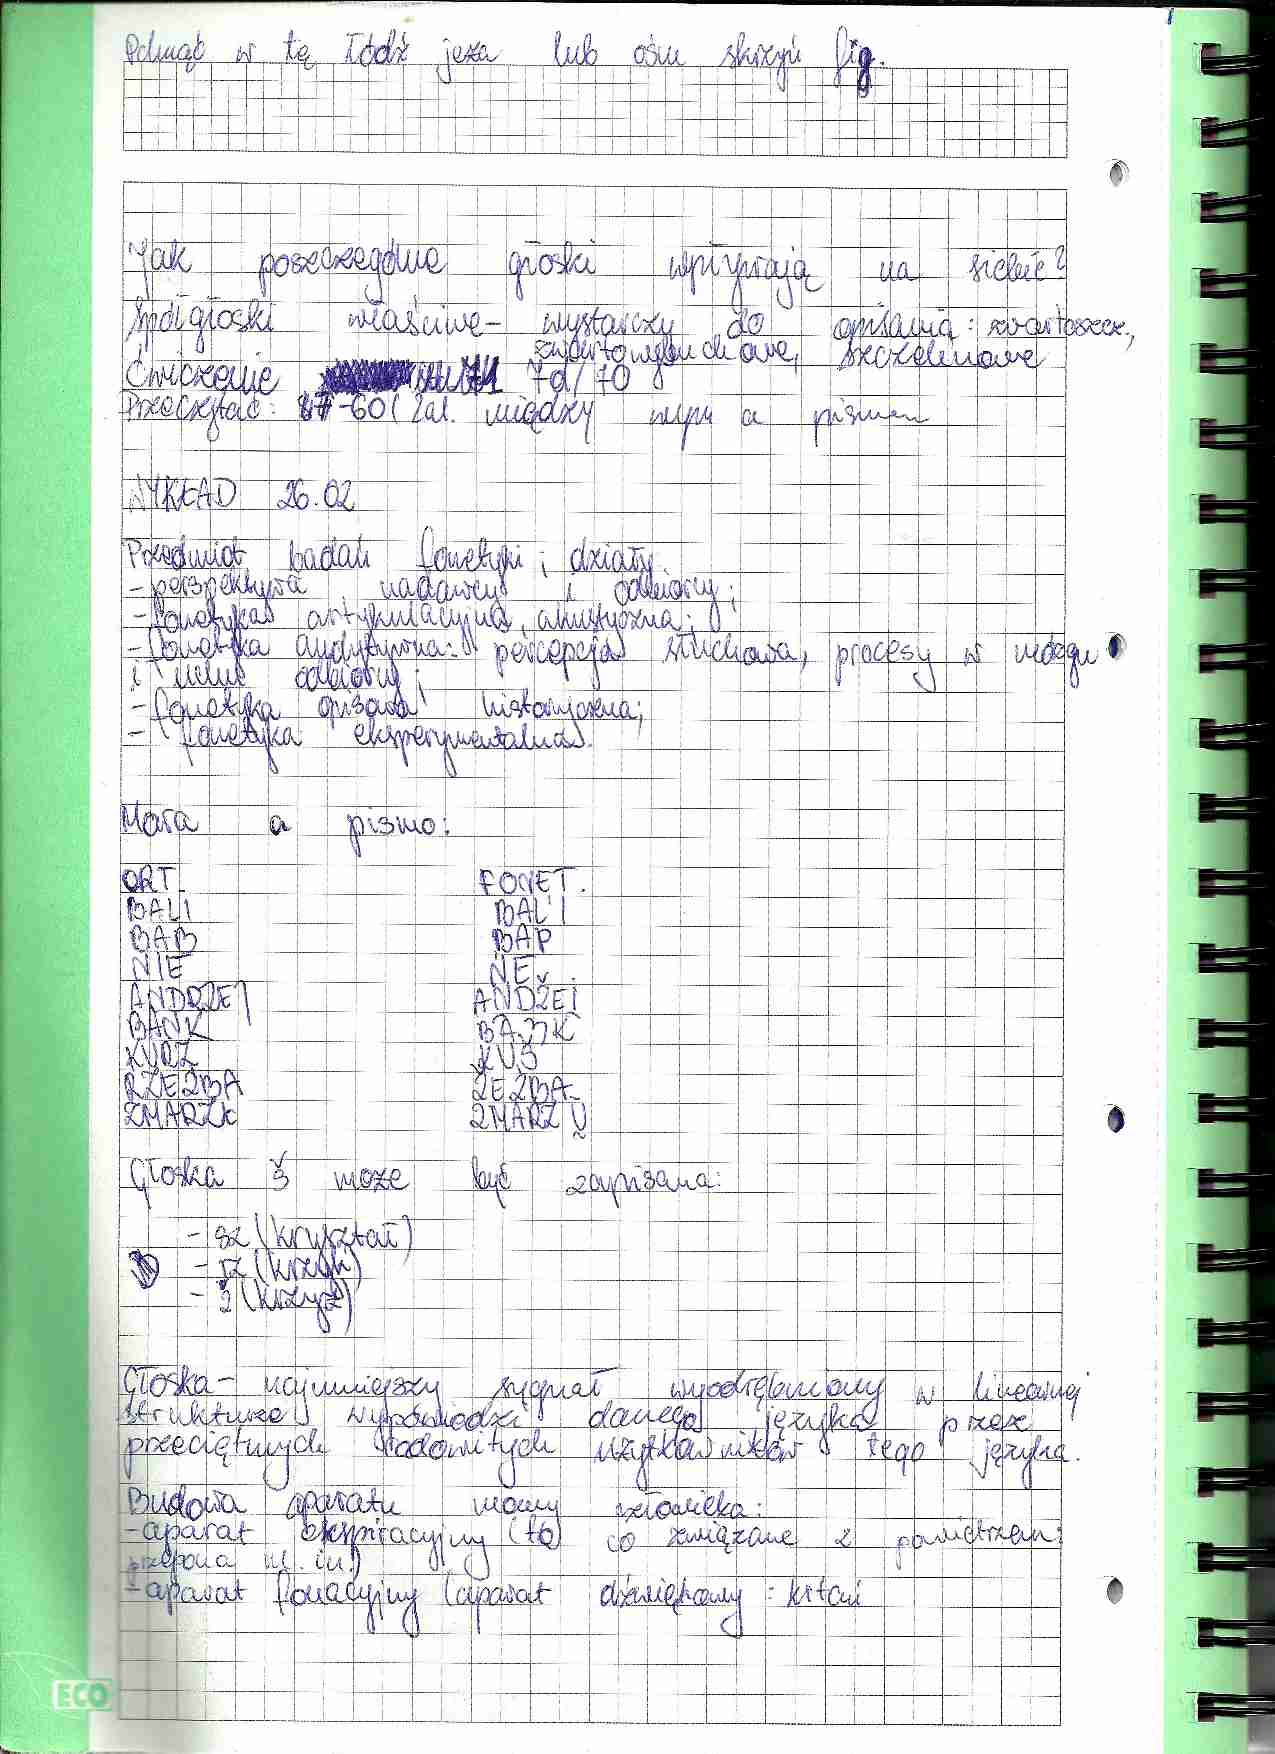 Pchnąć w tę łódź jeża lub ośm skrzyń fig.
Jak poszczególne głoski wpływają na siebie?
Spółgłoski właściwe - wystarczy do opisania: zwartoszcz.,
zwartowybuchowe, szczelinowe
Ćwiczenie 7d/70
Przeczytać: 47-60 (Zal. między wym a pismem
WYKŁAD 26.02
Przedmiot badań fonetyki i działy.
- perspektywa nadawcy i odbiorcy;
- fonetyka artykulacyjna, akustyczna;
- fonetyka audytywna: percepcja słuchowa, procesy w mózgu
i uchu odbiorcy;
- fonetyka opisowa historyczna;
- fonetyka eksperymentalna.
Mowa a pismo:
ORT. FONET.
BALI BAL'I
BAB BAP
NIE ŃE
ANDRZEJ ANDŽEI̯
BANK BAŋK
KURZ KUŠ
RZEŹBA ŽEŹBA
ZMARZŁ ZMARZ U̯
Głoska š może być zapisana:
- sz (kryształ)
- rz (krzak)
- ż (krzyż)
Głoska - najmniejszy sygnał wyodrębniony w linearnej
strukturze wypowiedzi danego języka przez
przeciętnych rodowitych użytkowników tego języka.
Budowa aparatu mowy człowieka:
- aparat ekspiracyjny (to co związane z powietrzem:
przepona m. in.)
- aparat fonacyjny (aparat dźwiękowy: krtań
ECO